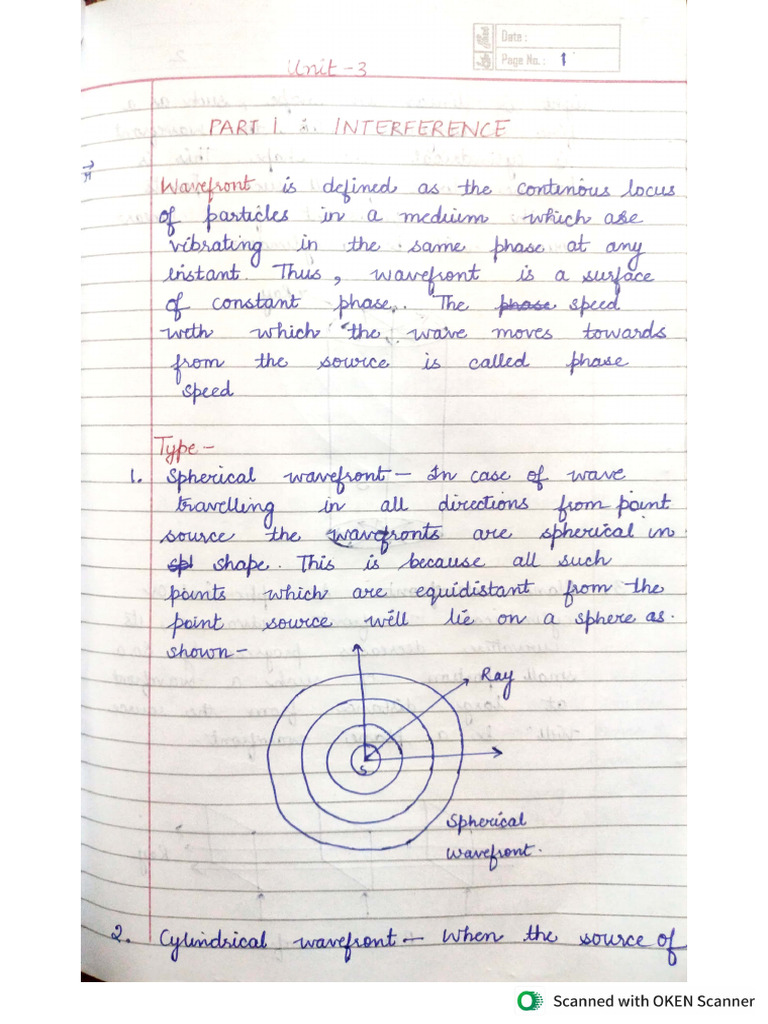 Date :
Page No. : 1
Unit - 3
PART 1 : INTERFERENCE
Wavefront is defined as the contenous locus
of particles in a medium which are
vibrating in the same phase at any
instant. Thus, wavefront is a surface
of constant phase. The phase speed
with which the wave moves towards
from the source is called phase
speed
Type -
1. Spherical wavefront - In case of wave
travelling in all directions from point
source the wavefronts are spherical in
sp! shape. This is because all such
points which are equidistant from the
point source will lie on a sphere as
shown -
Ray
S
Spherical
wavefront.
2. Cylindrical wavefront - When the source of
Scanned with OKEN Scanner